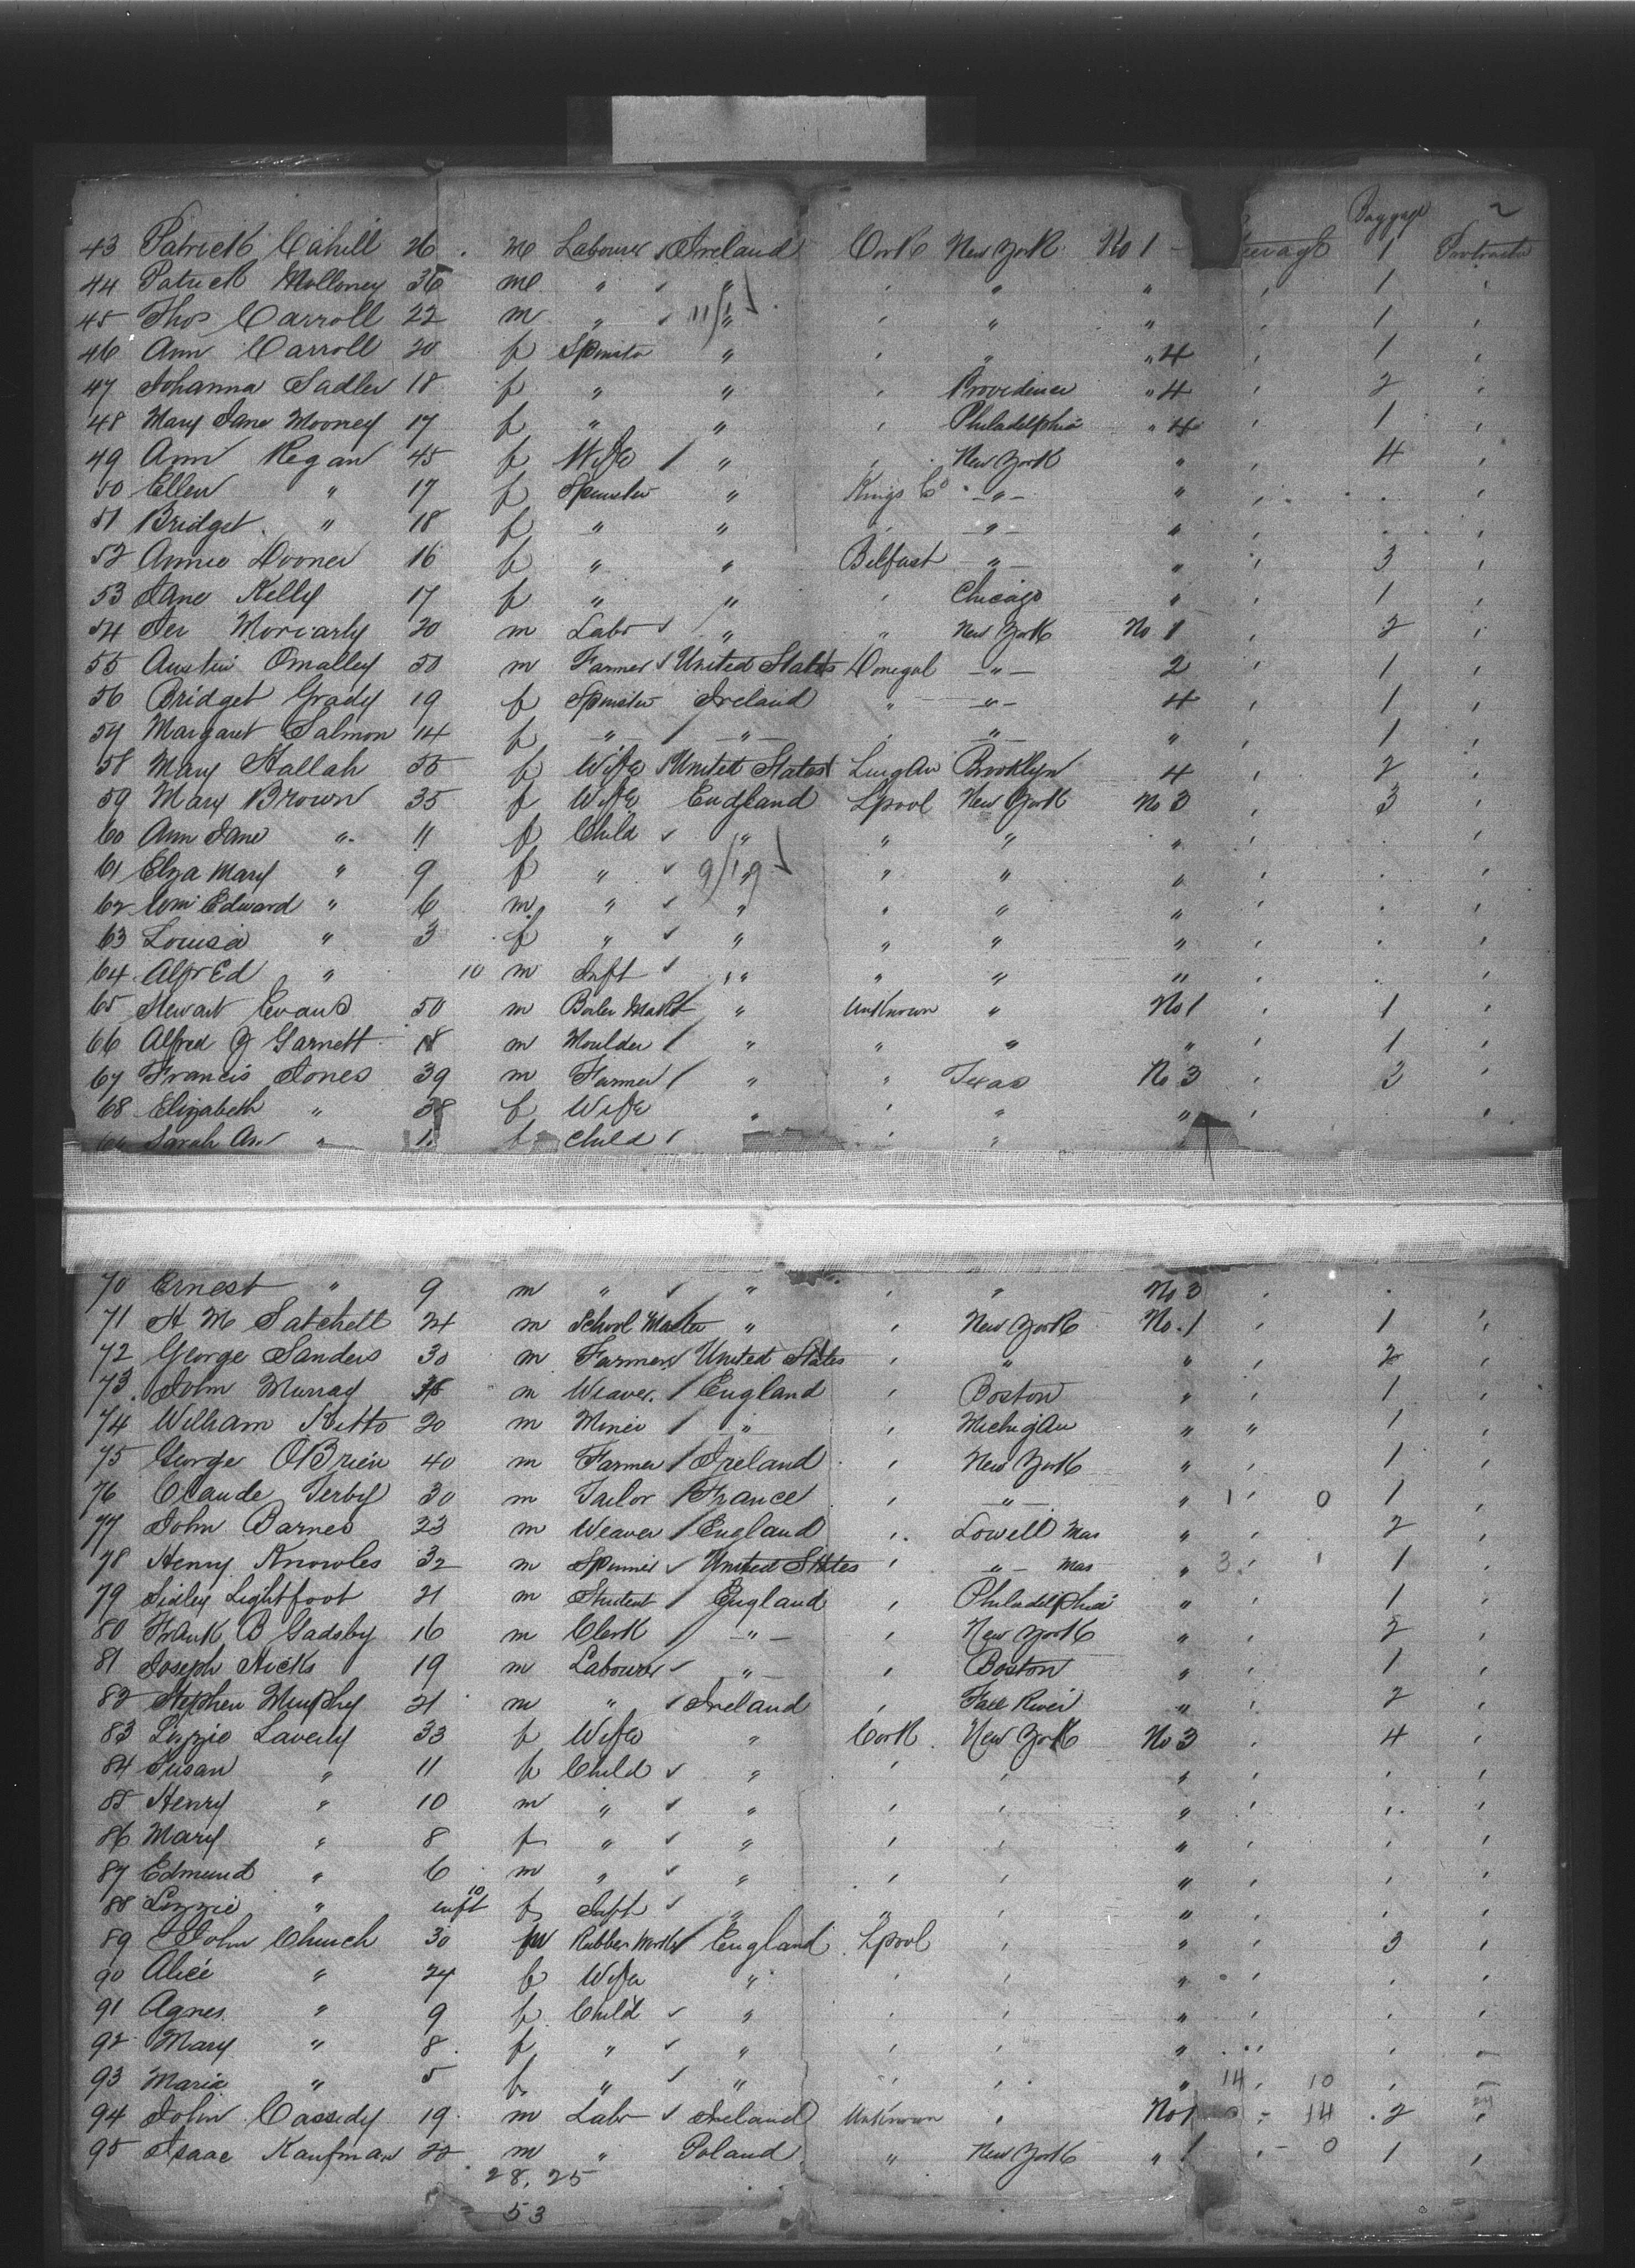 Baggage 2
43 Patrick Cahill 26 m Labourer Ireland Cork New York No 1 1
44 Patrick Molloney 36 m " " " " 1
45 Thos Carroll 22 m " 11/1 " " " 1
46 Ann Carroll 20 f Spinster " " " 4 1
47 Johanna Sadler 18 f " " Providence " 4 2
48 Mary Jane Mooney 17 f " " Philadelphia " 4 1
49 Ann Regan 45 f Wife " New York " 4
50 Ellen " 17 f Spinster " Kings Co - " - "
51 Bridget " 18 f " " - " - "
52 Annie Dooner 16 f " " Belfast - " - " 3
53 Jane Kelly 17 f " " Chicago " 1
54 Jer Moriarly 20 m Labr " " New York No 1 2
55 Austin Omalley 50 m Farmer United States Donegal - " - 2 1
56 Bridget Grady 19 f Spinster Ireland " - " - 4 1
57 Margaret Salmon 14 f - " - - " - - " - " 1
58 Mary Hallah 55 f Wife United States Brooklyn 4 2
59 Mary Brown 35 f Wife England Lpool New York No 3 3
60 Ann Jane " 11 f Child " " " "
61 Elza Mary " 9 f " 9/19 " " "
62 Wm Edward " 6 m " " " " "
63 Louisa " 3 f " " " " "
64 Alfred " 10 m Inft " " " "
65 Stewart Evans 50 m Boiler Maker " Unknown " No 1 1
66 Alfred J Garnett 18 m Moulder " " " " 1
67 Francis Jones 39 m Farmer " " Texas No 3 3
68 Elizabeth " 38 f Wife " " "
Sarah An " f Child "
70 Ernest " 9 m " " " No 3
71 H M Satchell 24 m School Master " New York No. 1 1
72 George Sanders 30 m Farmer United States " " 2
73 John Murray m Weaver England Boston " 1
74 William Kitto 20 m Miner " Michigan " " 1
75 George OBrien 40 m Farmer Ireland New York " 1
76 Claude Terby 30 m Tailor France - " - " 1 0 1
77 John Barnes 23 m Weaver England Lowell Mas " 2
78 Henry Knowles 32 m Spinner United States - " - Mas " 3 1 1
79 Sidley Lightfoot 21 m Student England Philadelphia " 1
80 Frank B Gadsby 16 m Clerk - " - New York " 2
81 Joseph Hicks 19 m Labourer " Boston " 1
82 Stephen Murphy 21 m " Ireland Fall River " 2
83 Lizzie Laverly 33 f Wife " Cork New York No 3 4
84 Susan " 11 f Child " "
85 Henry " 10 m " " "
86 Mary " 8 f " " "
87 Edmund " 6 m " " "
88 Lizzie " inft 10 f Inft " " "
89 John Church 30 m Rubber Worker England Lpool " 3
90 Alice " 24 f Wife " "
91 Agnes " 9 f Child " "
92 Mary " 8 f " " "
93 Maria " 5 f " " " 14 10
94 John Cassedy 19 m Labr Ireland Unknown " No 1 14 2
95 Isaac Kaufman 22 m " Poland " New York " 1 0 1
28, 25
53